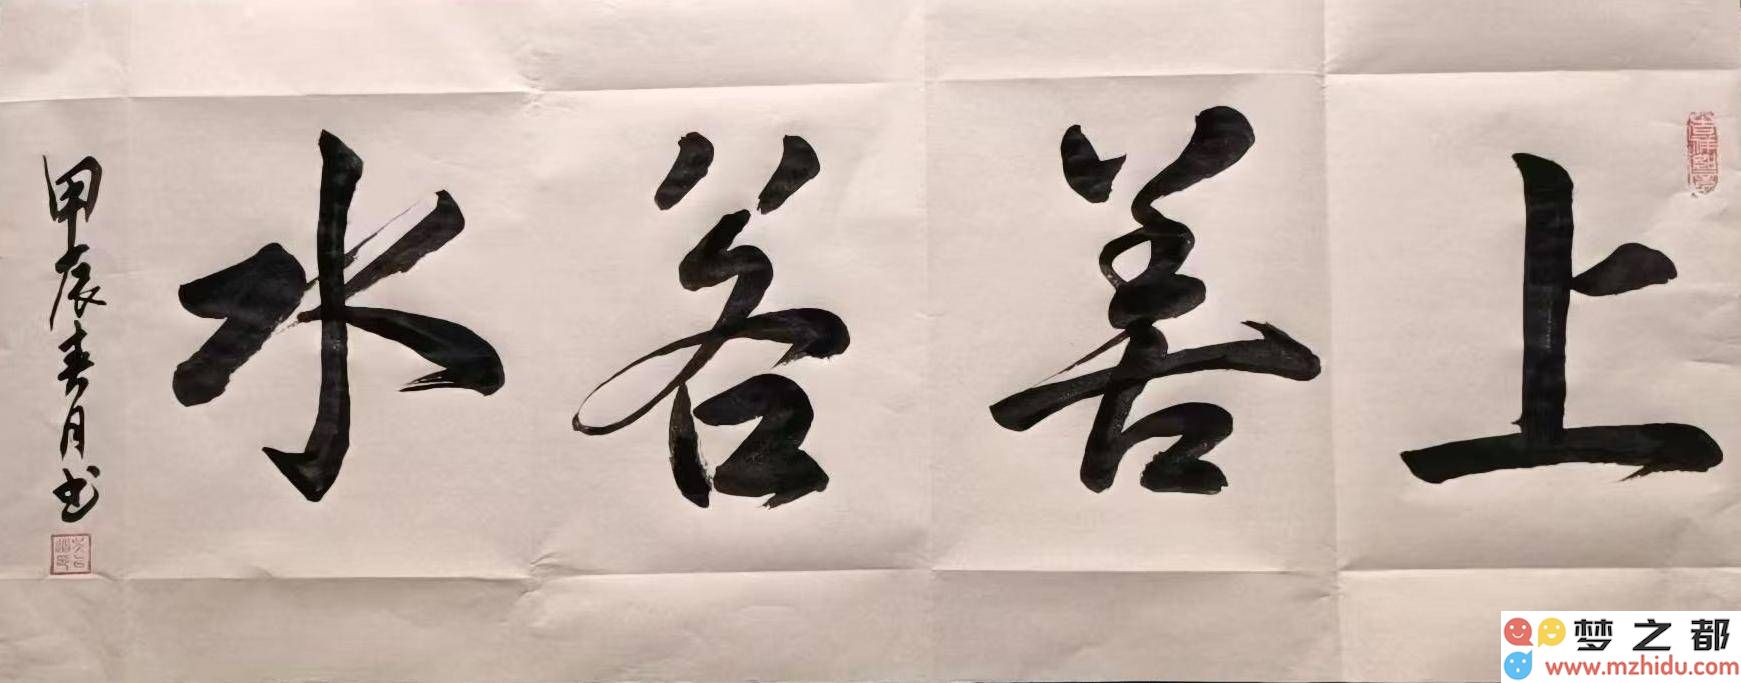 上善若水
甲辰春月书
梦之都
www.mzhidu.com